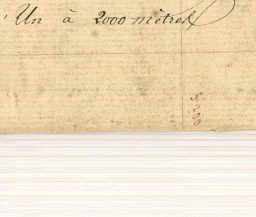 Un à 2000 mètres